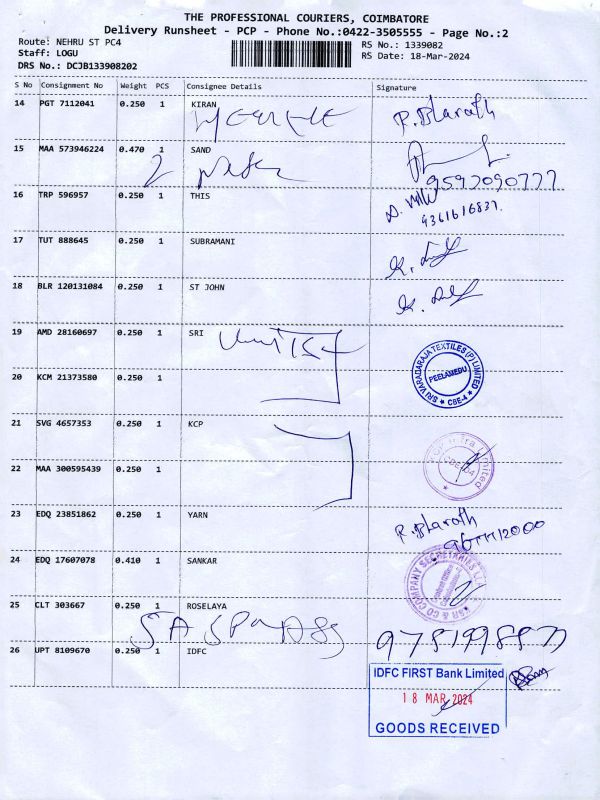 THE PROFESSIONAL COURIERS, COIMBATORE
Delivery Runsheet - PCP - Phone No.:0422-3505555 - Page No.:2
Route: NEHRU ST PC4
Staff: LOGU
DRS No.: DCJB133908202
RS No.: 1339082
RS Date: 18-Mar-2024
S No Consignment No Weight PCS Consignee Details Signature
14 PGT 7112041 0.250 1 KIRAN R. Bharath
15 MAA 573946224 0.470 1 SAND
2
9597090777
16 TRP 596957 0.250 1 THIS
9361616837.
17 TUT 888645 0.250 1 SUBRAMANI
18 BLR 120131084 0.250 1 ST JOHN
19 AMD 28160697 0.250 1 SRI
SRI VARADARAJA TEXTILES (P) LIMITED
PEELAMEDU
CBE-4
20 KCM 21373580 0.250 1
21 SVG 4657353 0.250 1 KCP
Infra Limited
22 MAA 300595439 0.250 1
23 EDQ 23851862 0.250 1 YARN R. Bharath
24 EDQ 17607078 0.410 1 SANKAR
& CO COMPANY SECRETARIES
25 CLT 303667 0.250 1 ROSELAYA
26 UPT 8109670 0.250 1 IDFC
IDFC FIRST Bank Limited
18 MAR 2024
GOODS RECEIVED